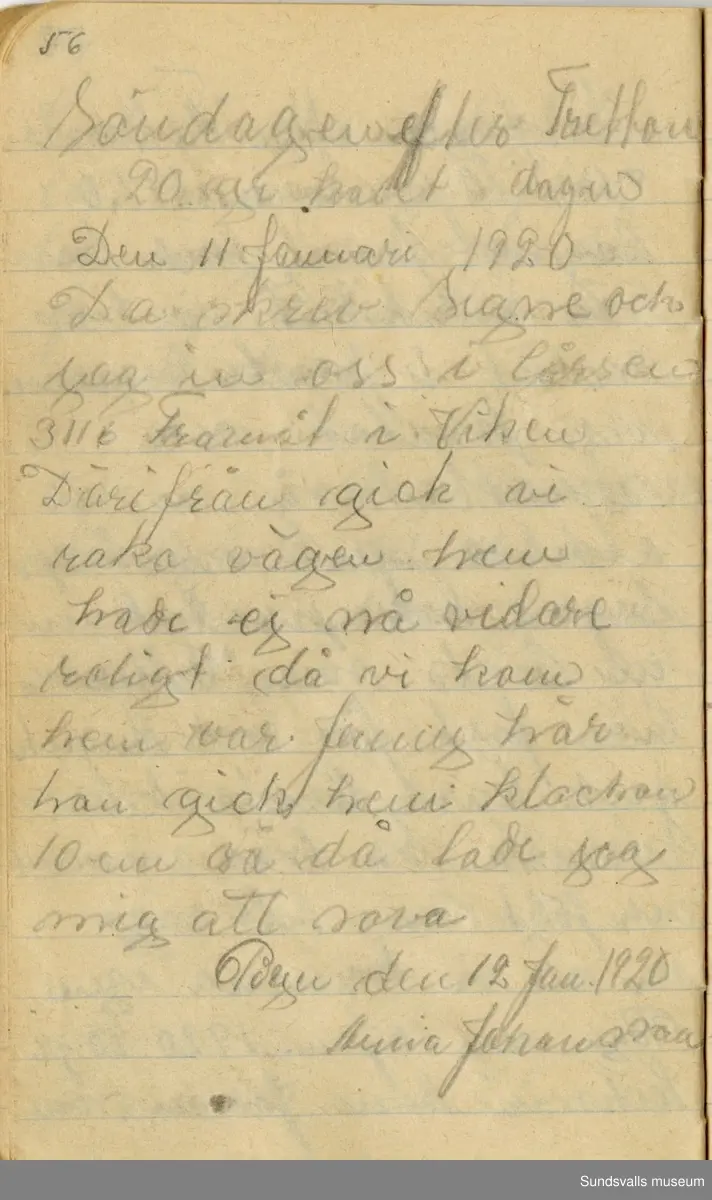 56
Söndagen efter Tretton
20 gr kalt dagen
Den 11 Januari 1920
Da skrev Signe och
jag in oss i lårsen
3116 Framåt i Viken
Därifrån gick vi
raka vägen hem
hade ej så vidare
roligt då vi kom
hem var Jenny här
hon gick hem klockan
10 em så då lade jag
mig att sova
den 12 Jan. 1920
Anna Johansson
Sundsvalls museum